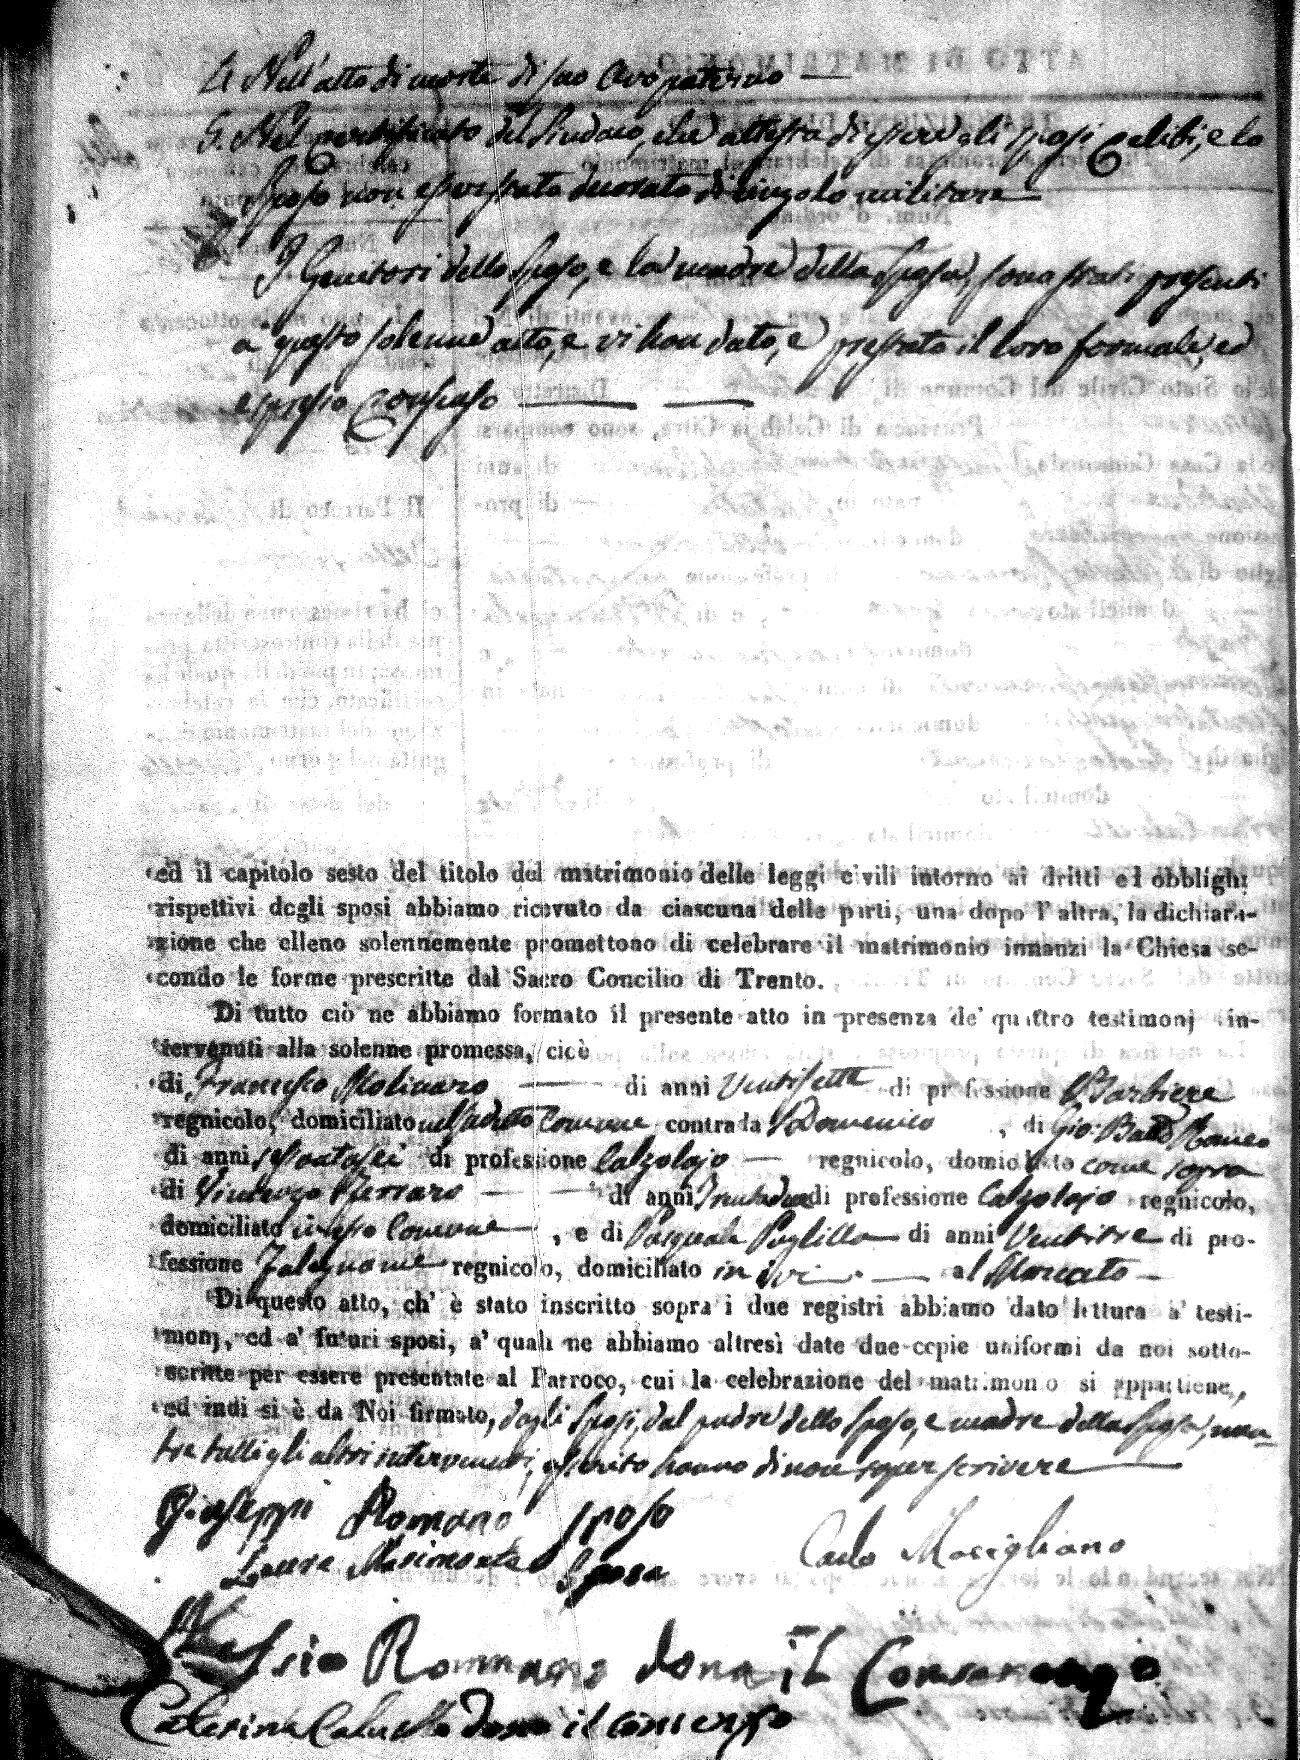 4. Nell'atto di morte di suo Avo paterno —
5. Nel certificato del Sindaco, che attesta di essere gli sposi celibi, e lo
sposo non esser stato decorato di cingolo militare —
I Genitori dello sposo, e la madre della sposa, sono stati presenti
a questo solenne atto, e vi han dato, e prestato il loro formale, ed
espresso consenso — —
ed il capitolo sesto del titolo del matrimonio delle leggi civili intorno ai dritti ed obblighi
rispettivi degli sposi abbiamo ricevuto da ciascuna delle parti, una dopo l'altra, la dichiara-
zione che elleno solennemente promettono di celebrare il matrimonio innanzi la Chiesa se-
condo le forme prescritte dal Sacro Concilio di Trento.
Di tutto ciò ne abbiamo formato il presente atto in presenza de' quattro testimonj in-
tervenuti alla solenne promessa, cioè
di Francesco Molinaro — di anni Ventisette di professione Barbiere
regnicolo, domiciliato nel sudetto Comune contrada S. Domenico , di Gio: Batta
di anni di professione Calzolajo — regnicolo, domiciliato come sopra
di Vincenzo Ferraro — — di anni Trentadue di professione Calzolajo regnicolo,
domiciliato in esso Comune — , e di Pasquale Puglilla di anni Ventitre di pro-
fessione Falegname regnicolo, domiciliato in ivi . — al Mercato —
Di questo atto, ch' è stato inscritto sopra i due registri abbiamo dato lettura a' testi-
monj, ed a' futuri sposi, a' quali ne abbiamo altresì date due copie uniformi da noi sotto-
scritte per essere presentate al Parroco, cui la celebrazione del matrimonio si appartiene,
ed indi si è da Noi firmato, dagli sposi, dal padre dello sposo, e madre della sposa, men-
tre tutti gli altri intervenuti, asserito hanno di non saper scrivere —
Giuseppi Romano sposo
Carlo Macigliano
Laura sposa
Alessio Romano dona il Consenzo
Caterina dono il conzenzo